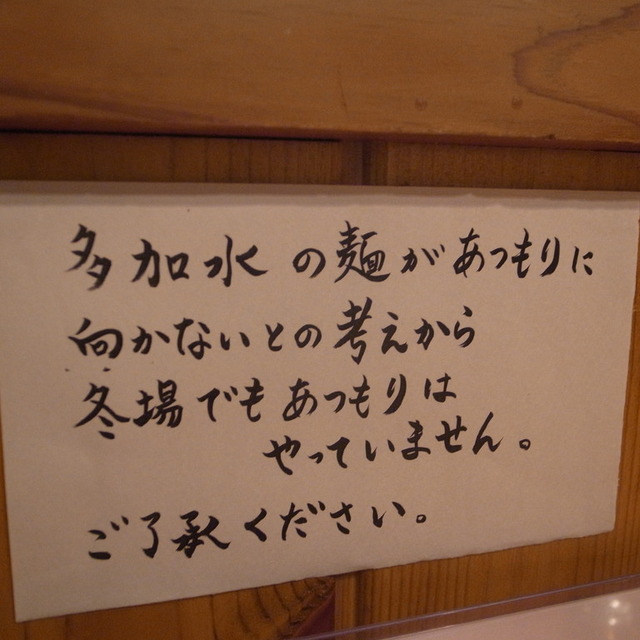 多加水の麺があつもりに
向かないとの考えから
冬場でもあつもりは
やっていません。
ご了承ください。